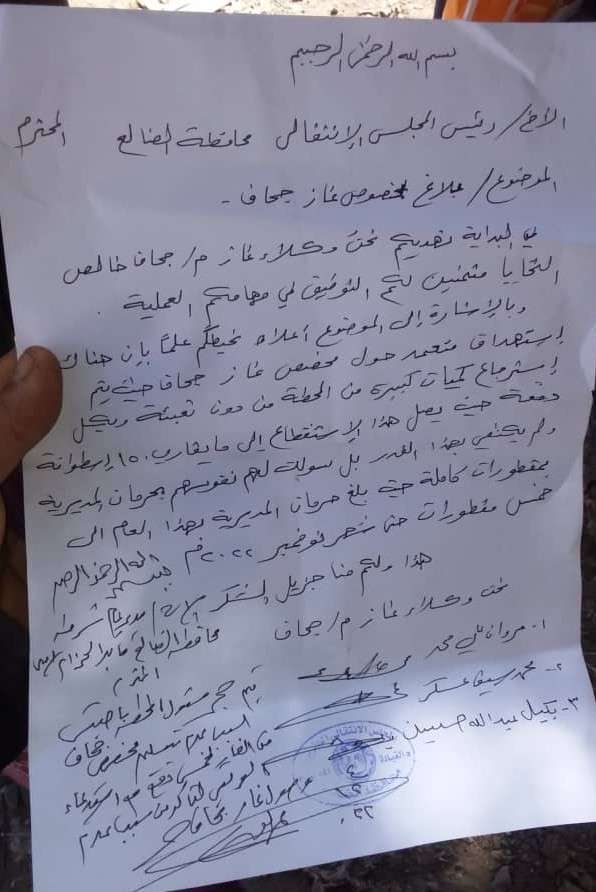 بسم الله الرحمن الرحيم
الأخ/ رئيس المجلس الإنتقالي محافظة الضالع المحترم
الموضوع/ بلاغ بخصوص غاز جحاف -
في البداية نهديكم نحن وكلاء غاز م/ جحاف خالص
التحايا متمنين لكم التوفيق في مهامكم العملية .
وبالإشارة إلى الموضوع أعلاه نحيطكم علماً بإن هناك
إستهداف متعمد حول مخصص غاز جحاف حيث يتم
إسترجاع كميات كبيرة من المحطة من دون تعبئة وبكل
دفعة حيث يصل هذا الإستقطاع إلى ما يقارب ١٥٠ إسطوانة
ولم يكتفي بهذا القدر بل سولة لهم نفوسهم بحرمان المديرية
بمقطورات كاملة حيث بلغ حرمان المديرية بهذا العام الى
خمس مقطورات حتى شهر نوفمبر ٢٠٢٢م
بسم الله الرحمن الرحيم
هذا ولكم منا جزيل الشكر
نحن وكلاء غاز م/ جحاف
١- مروان علي محمد
٢- محمد سيف عسكر
٣- بكيل عبدالله حسين
الأخ/ مدير عام شرطة
محافظة الضالع قائد الحزام
المحترم
يتم حجز مسئول المحطة
مخصص جحاف
من الغاز